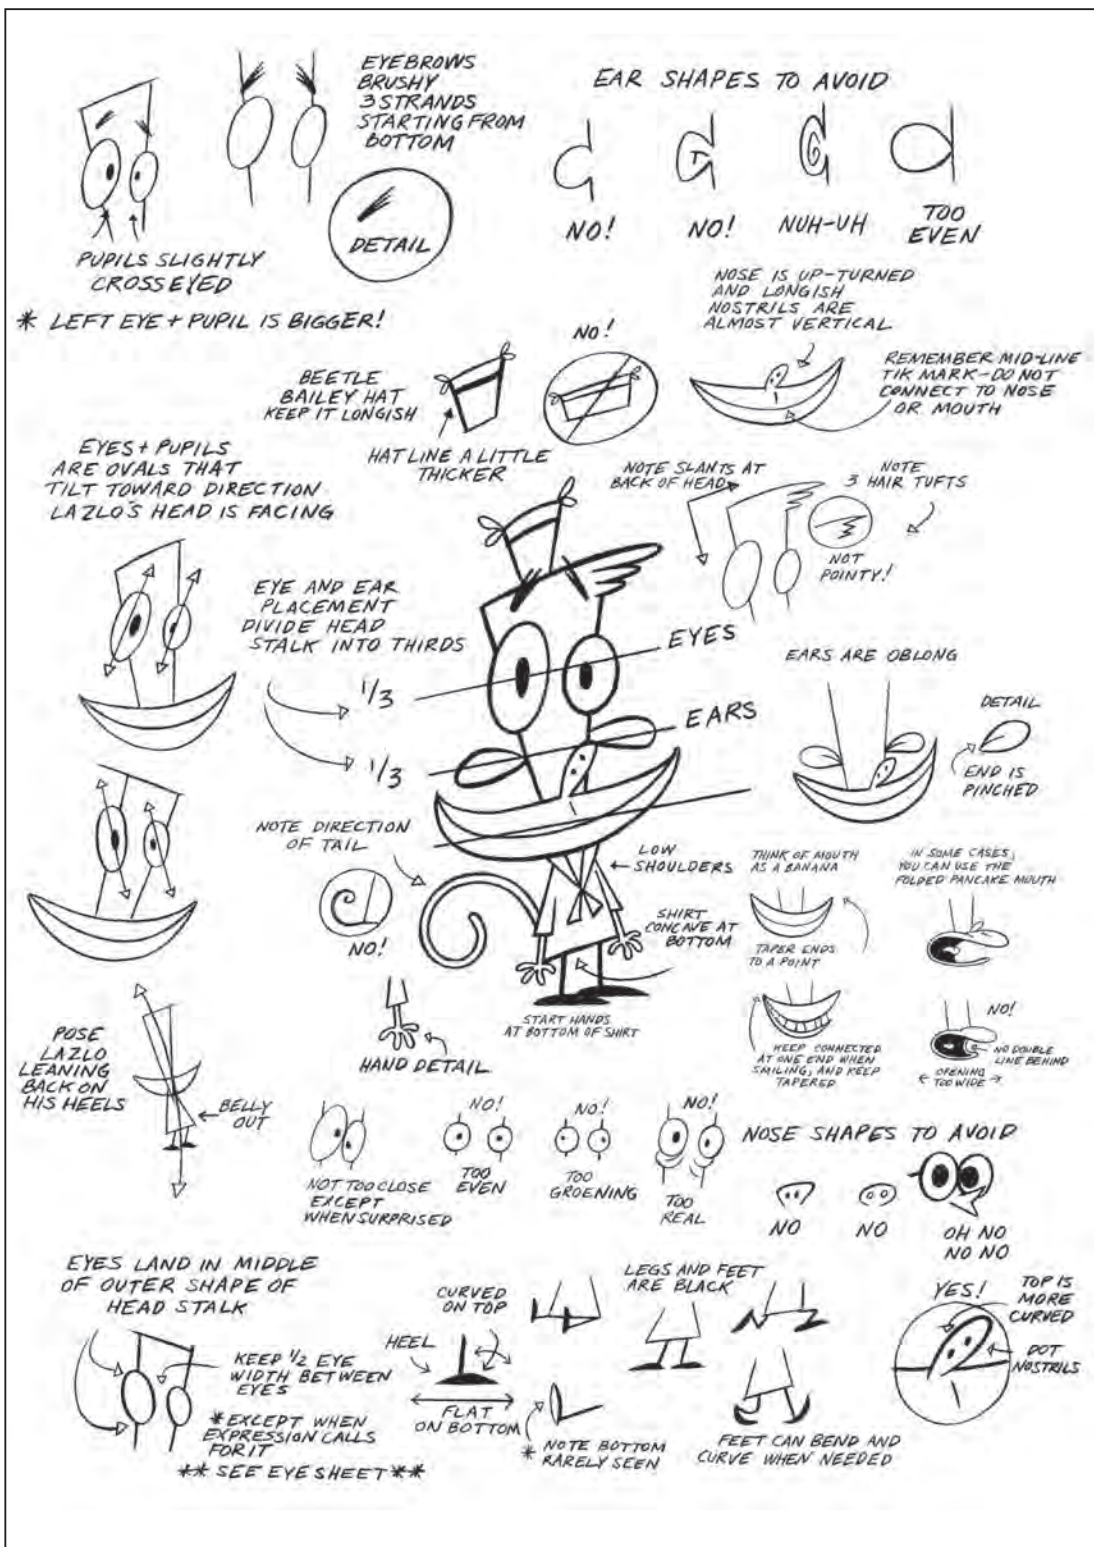 EYEBROWS
BRUSHY
3 STRANDS
STARTING FROM
BOTTOM
DETAIL
PUPILS SLIGHTLY
CROSSEYED
* LEFT EYE + PUPIL IS BIGGER!
EAR SHAPES TO AVOID
NO!
NO!
NUH-UH
TOO
EVEN
NOSE IS UP-TURNED
AND LONGISH
NOSTRILS ARE
ALMOST VERTICAL
REMEMBER MID-LINE
TIK MARK-DO NOT
CONNECT TO NOSE
OR MOUTH
BEETLE
BAILEY HAT
KEEP IT LONGISH
NO!
HAT LINE A LITTLE
THICKER
EYES + PUPILS
ARE OVALS THAT
TILT TOWARD DIRECTION
LAZLO'S HEAD IS FACING
NOTE SLANTS AT
BACK OF HEAD
NOTE
3 HAIR TUFTS
NOT
POINTY!
EYE AND EAR
PLACEMENT
DIVIDE HEAD
STALK INTO THIRDS
1/3
EYES
1/3
EARS
EARS ARE OBLONG
DETAIL
END IS
PINCHED
NOTE DIRECTION
OF TAIL
NO!
LOW
SHOULDERS
SHIRT
CONCAVE AT
BOTTOM
START HANDS
AT BOTTOM OF SHIRT
HAND DETAIL
THINK OF MOUTH
AS A BANANA
TAPER ENDS
TO A POINT
IN SOME CASES,
YOU CAN USE THE
FOLDED PANCAKE MOUTH
KEEP CONNECTED
AT ONE END WHEN
SMILING, AND KEEP
TAPERED
NO!
NO DOUBLE
LINE BEHIND
OPENING
TOO WIDE
POSE
LAZLO
LEANING
BACK ON
HIS HEELS
BELLY
OUT
NOT TOO CLOSE
EXCEPT
WHEN SURPRISED
NO!
TOO
EVEN
NO!
TOO
GROENING
NO!
TOO
REAL
NOSE SHAPES TO AVOID
NO
NO
OH NO
NO NO
EYES LAND IN MIDDLE
OF OUTER SHAPE OF
HEAD STALK
KEEP 1/2 EYE
WIDTH BETWEEN
EYES
* EXCEPT WHEN
EXPRESSION CALLS
FOR IT
** SEE EYE SHEET **
CURVED
ON TOP
HEEL
FLAT
ON BOTTOM
* NOTE BOTTOM
RARELY SEEN
LEGS AND FEET
ARE BLACK
FEET CAN BEND AND
CURVE WHEN NEEDED
YES!
TOP IS
MORE
CURVED
DOT
NOSTRILS